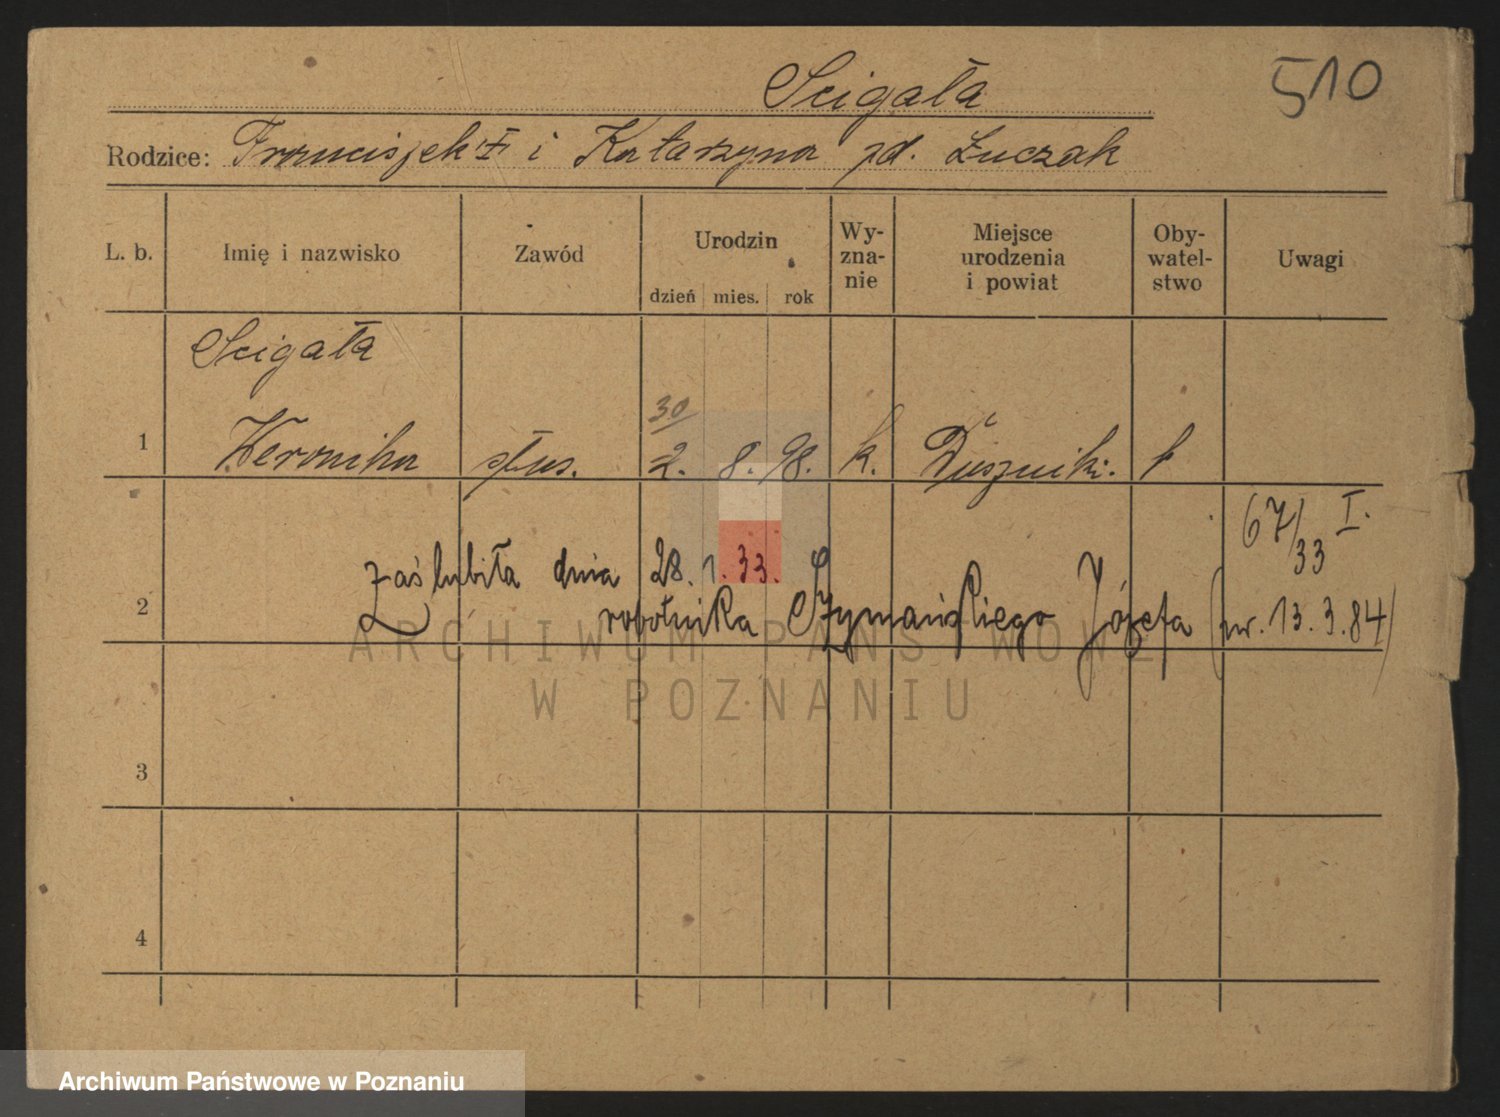 Scigała
510
Rodzice: Franciszek i Katarzyna zd. Łuczak
L. b. Imię i nazwisko Zawód Urodzin Wy-zna-nie Miejsce urodzenia i powiat Oby-watel-stwo Uwagi
dzień mies. rok
Scigała
30
1 Weronika służ. 2. 8. 98. k. Duszniki.
67/33 I.
zaślubiła dnia 28. 1. 33.
2 robotnika Szymańskiego Józefa (ur. 13. 3. 84)
ARCHIWUM PAŃSTWOWE
W POZNANIU
3
4
Archiwum Państwowe w Poznaniu